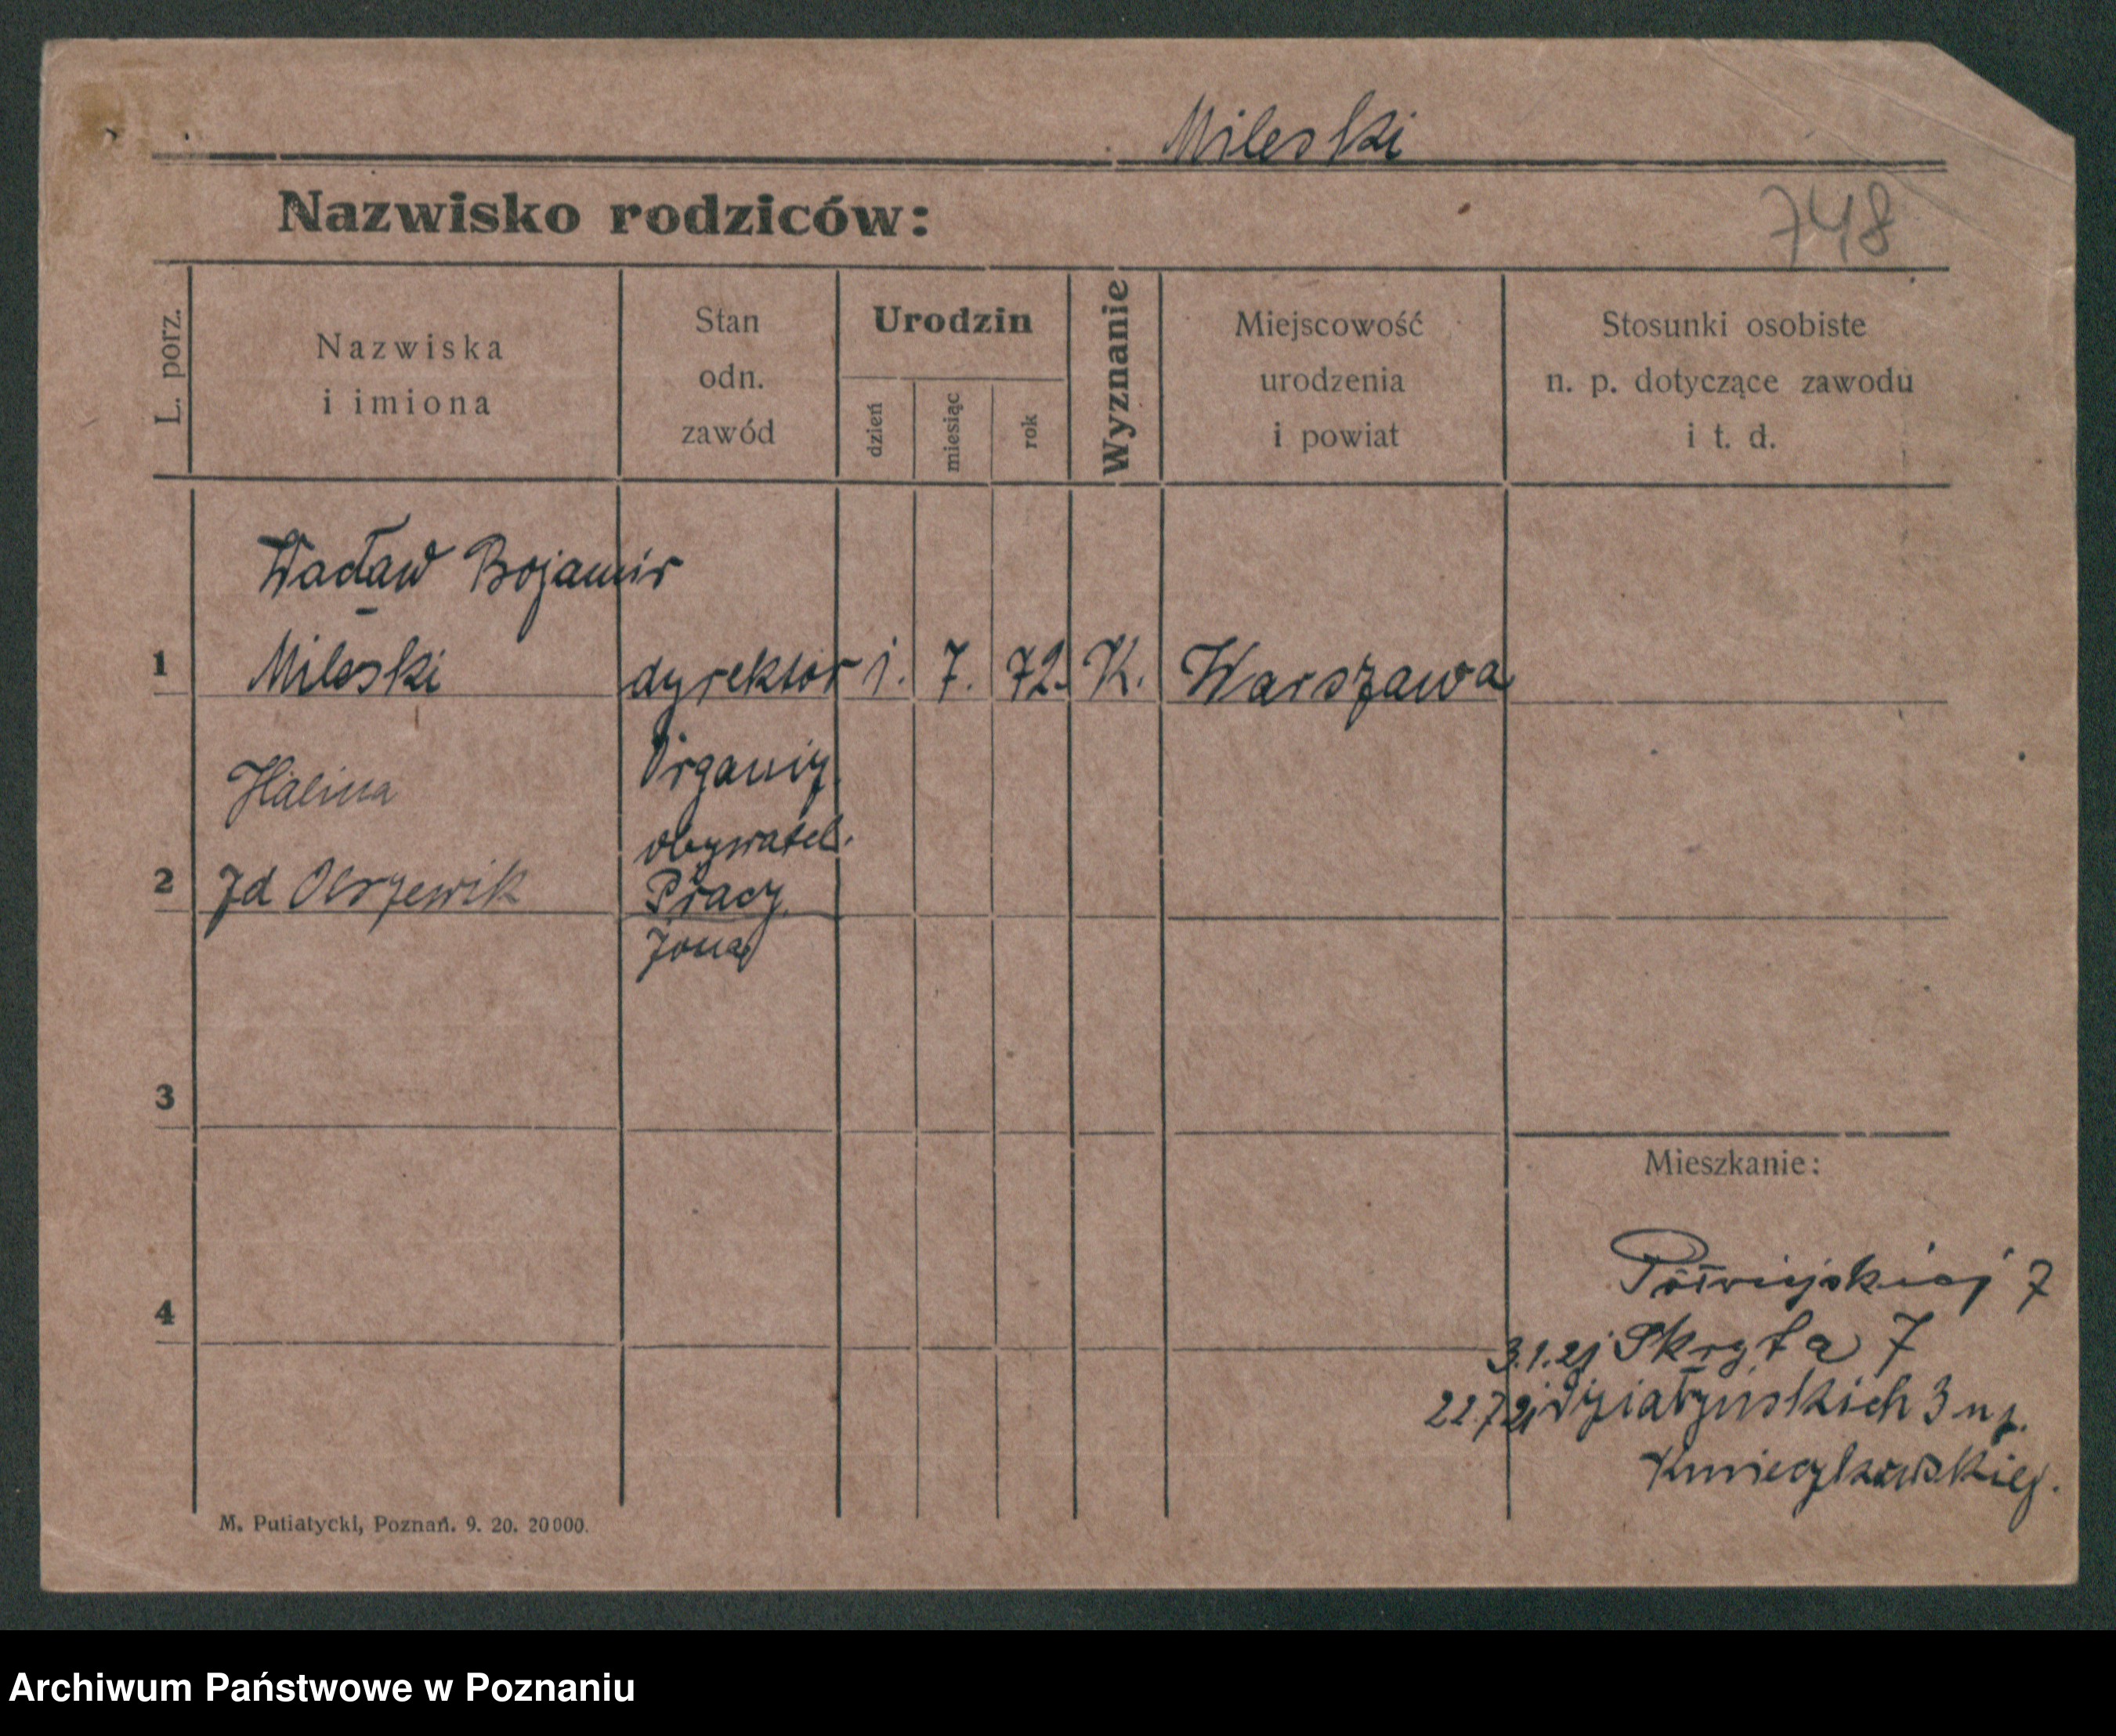 Mileski
Nazwisko rodziców:
748
L. porz.
Nazwiska
i imiona
Stan
odn.
zawód
Urodzin
dzień
miesiąc
rok
Wyznanie
Miejscowość
urodzenia
i powiat
Stosunki osobiste
n. p. dotyczące zawodu
i t. d.
Wacław Bojamir
1 Mileski dyrektor 1. 7. 72. K. Warszawa
Organiz.
Halina
obywatel.
2 Pracy
żona
3
Mieszkanie:
Półwiejskiej 7
4
3.1.21 Skryta 7
22.7.21 Działyńskich 3 u p.
M. Putiatycki, Poznań. 9. 20. 20000.
Archiwum Państwowe w Poznaniu